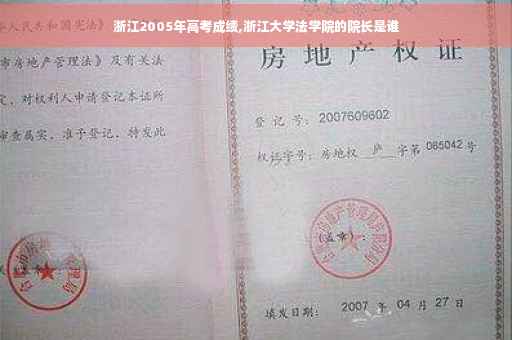 浙江2005年高考成绩,浙江大学法学院的院长是谁
人民共和国宪法》
市房地产管理法》及有关法
定，对权利人申请登记本证所
审查属实，准予登记，特发此
房地产权证
登记号：2007609602
权证字号：房地权 庐 字第 085042 号
(盖章)：
填发日期：2007 年 04 月 27 日